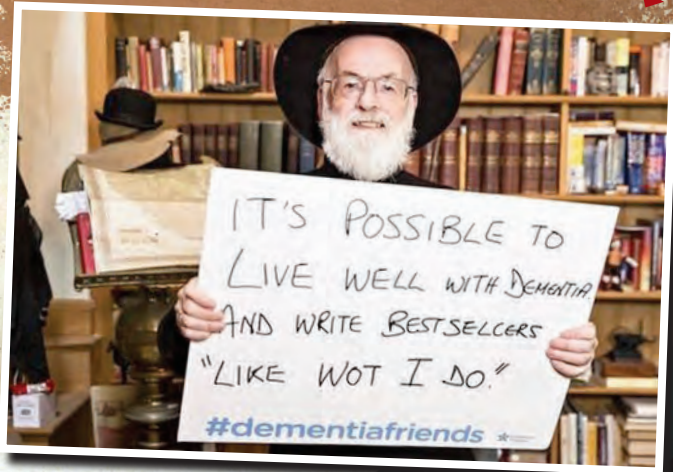 IT'S POSSIBLE TO
LIVE WELL WITH DEMENTIA
AND WRITE BESTSELLERS
"LIKE WOT I DO."
#dementiafriends